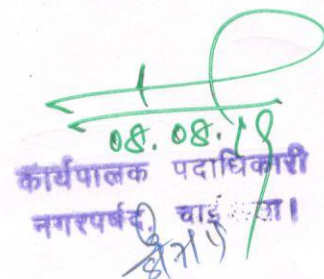 08.08.19
कार्यपालक पदाधिकारी
नगरपर्षद, चाई